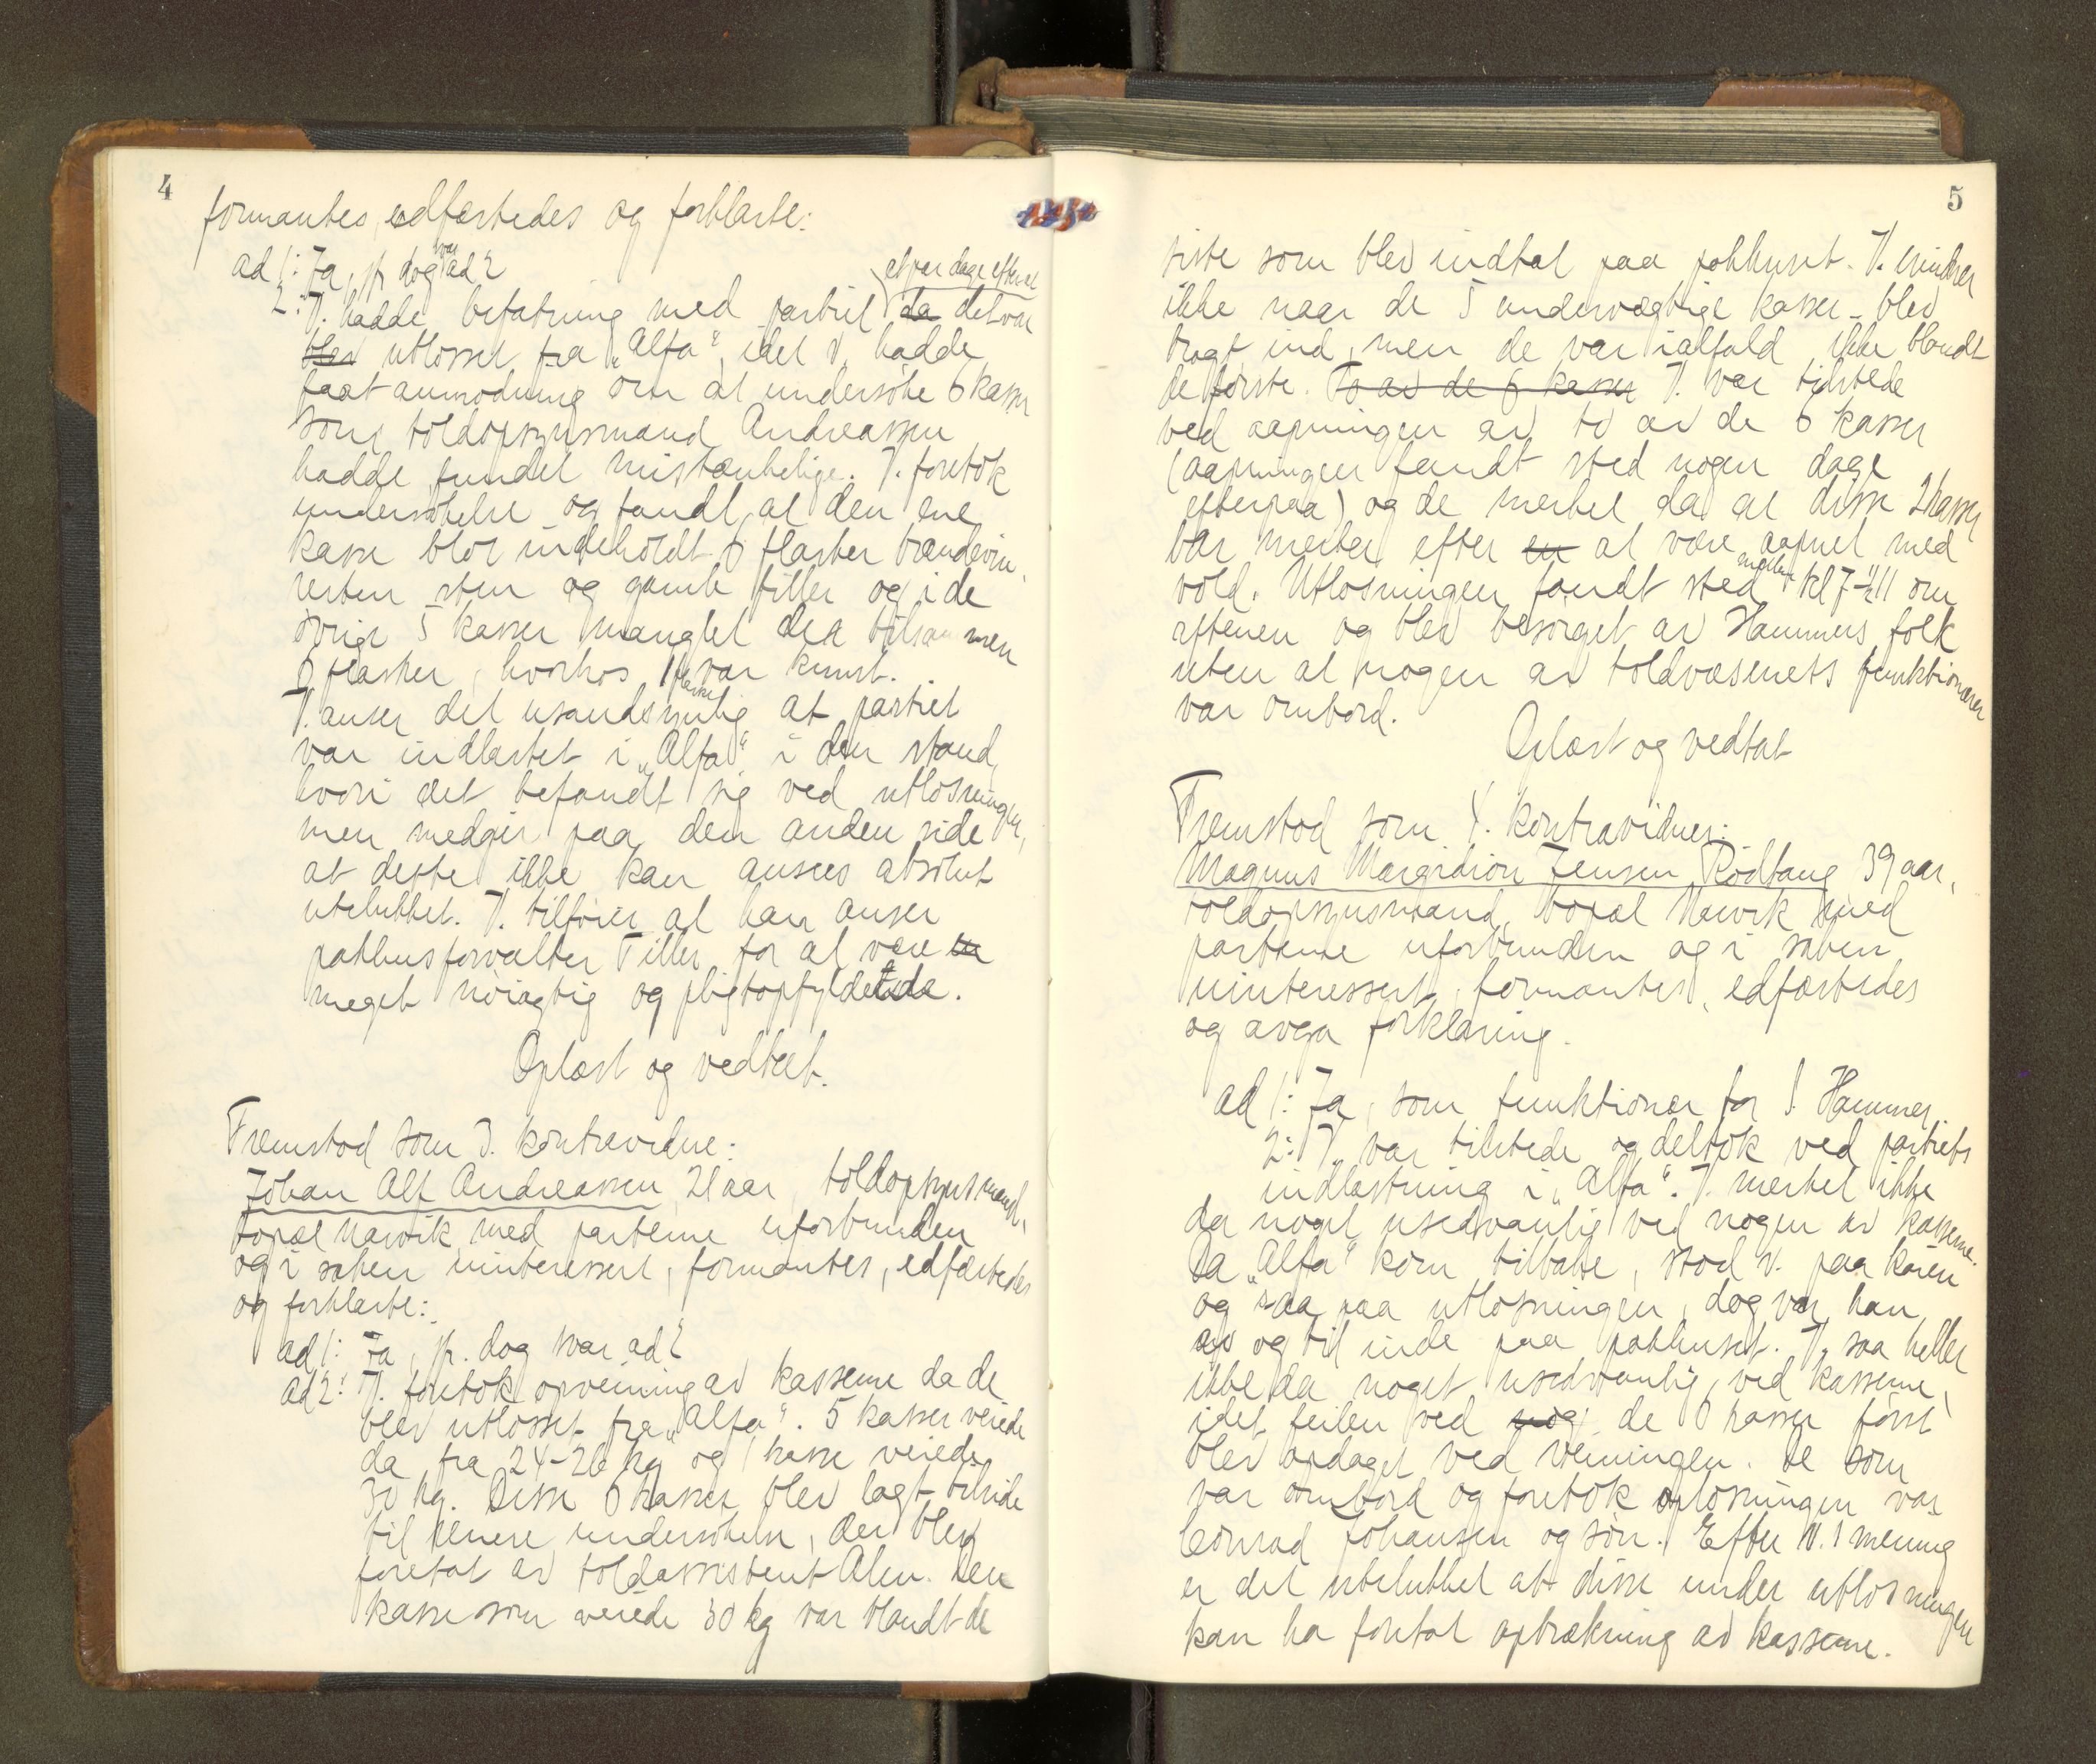 4
formantes, edfæstedes og forklarte:
ad 1: Ja, jfr. dog svar ad 2
2: V. hadde befatning med partiet et par dage efterat da det var
blev utlosset fra "Alfa", idet V. hadde
faat anmodning om at undersöke 6 kasser
som toldopsynsmand Andreassen
hadde fundet mistænkelige. V. foretok
undersökelse og fandt at den ene
kasse blot indeholdt 6 flasker brændevin,
resten sten og gamle filler og i de
övrige 5 kasser manglet der tilsammen
6 flasker, hvorhos 1 flaske var knust.
V. anser det usandsynlig at partiet
var indlastet i "Alfa" i den stand,
hvori det befandt sig ved utlosningen,
men medgir paa den anden side
at dette ikke kan ansees absolut
utelukket. V. tilföier at han anser
pakhusforvalter Tiller for at være en
meget nöiagtig og pligtopfyldende.
Oplæst og vedtat.
Fremstod som 3. kontravidne:
Johan Alf Andreassen, 21 aar, toldopsynsmand,
bopæl Narvik, med parterne uforbunden
og i saken uinteressert, formantes, edfæstedes
og forklarte:
ad 1: Ja, jfr. dog svar ad 2
ad 2: V. foretok opveining av kasserne da de
blev utlosset fra "Alfa". 5 kasser veiede
da fra 24-26 kg og 1 kasse veiede
30 kg. Disse 6 kasser blev lagt tilside
til senere undersökelse, der blev
foretat av toldassistent Alen. Den
kasse som veiede 30 kg var blandt de
5
siste som blev indtat paa pakhuset. V. mindes
ikke naar de 5 undervægtige kasser blev
bragt ind, men de var ialfald ikke blandt
de förste. To av de 6 kasser V. var tilstede
ved aapningen av to av de 6 kasser
(aapningen fandt sted nogen dage
efterpaa) og de merket da at disse 2 kasser
bar merker efter en at være aapnet med
vold. Utlosningen fandt sted mellem kl 7-½11 om
aftenen og blev besörget av Hammers folk
uten at nogen av toldvæsenets funktionærer
var ombord.
Oplæst og vedtat
Fremstod som 4. kontravidne:
Magnus Margidion Jensen Rödtang 39 aar,
toldopsynsmand, bopæl Narvik, med
parterne uforbunden og i saken
uinteressert, formantes, edfæstedes
og avga forklaring.
ad 1: Ja, som funktionær for S. Hammer.
2: V. var tilstede og deltok ved partiets
indlastning i "Alfa". V. merket ikke
da noget usedvanlig ved nogen av kasserne.
Da "Alfa" kom tilbake, stod V. paa kaien
og saa paa utlosningen, dog var han
av og til inde paa pakhuset. V. saa heller
ikke da noget usedvanlig ved kasserne,
idet feilen ved nog de 6 kasser först
blev opdaget ved veiningen. De som
var ombord og foretok oplosningen var
Conrad Johansen og sön. Efter V.s mening
er det utelukket at disse under utlosningen
kan ha foretat opbrækning av kasserne.